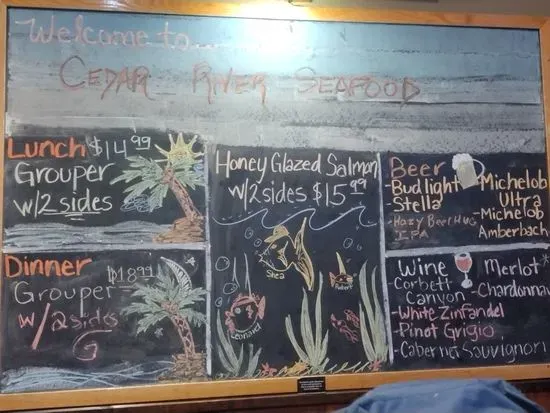 Welcome to...
CEDAR RIVER SEAFOOD
Lunch $14.99
Grouper
w/2 sides
Dinner
$18.99
Grouper
w/2 sides
G
Honey Glazed Salmon
w/2 sides $15.99
Shea
Leonard
Beer
-Bud light
-Stella
-Hazy Beer Hug
IPA
-Michelob
Ultra
-Michelob
Amberbach
Wine
-Corbett
Canyon
-White Zinfandel
-Pinot Grigio
-Cabernet Sauvignon
-Merlot
-Chardonnay